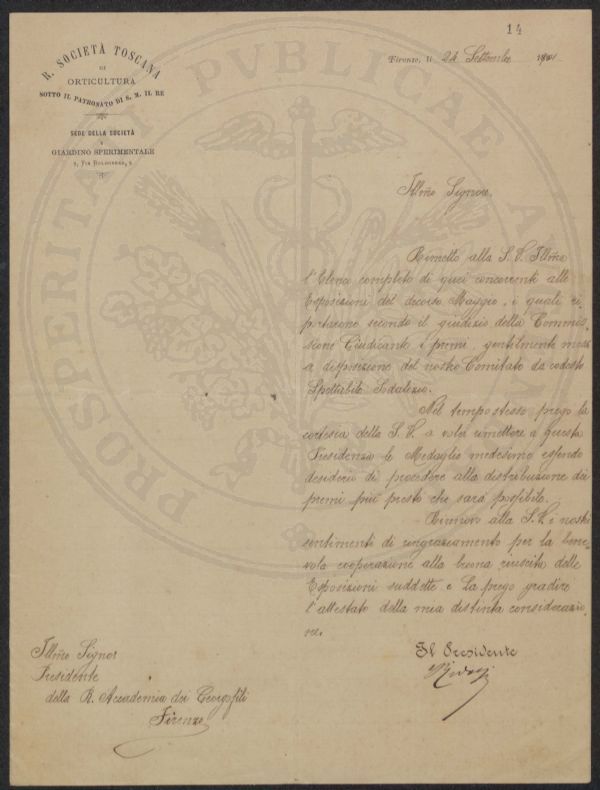 14
R. SOCIETÀ TOSCANA
DI
ORTICULTURA
SOTTO IL PATRONATO DI S. M. IL RE
SEDE DELLA SOCIETÀ
E
GIARDINO SPERIMENTALE
2, Via Bolognese, 2
Firenze, li 24 Settembre
Illmo Signore,
Rimetto alla S. V. Illma
l'Elenco completo di quei concorrenti alle
Esposizioni del decorso Maggio, i quali ri-
portarono secondo il giudizio della Commis-
sione Giudicante i premi, gentilmente messi
a disposizione del nostro Comitato da codesto
Spettabile Sodalizio.
Nel tempo stesso prego la
cortesia della S. V. a voler rimettere a questa
Presidenza le Medaglie medesime essendo
desiderio di procedere alla distribuzione dei
premi più presto che sarà possibile.
Rinnovo alla S. V. i nostri
sentimenti di ringraziamento per la bene-
vola cooperazione alla buona riuscita delle
Esposizioni suddette e La prego gradire
l'attestato della mia distinta considerazio-
ne.
Il Presidente
Illmo Signor
Presidente
della R. Accademia dei Georgofili
Firenze
PROSPERITATI PUBLICAE